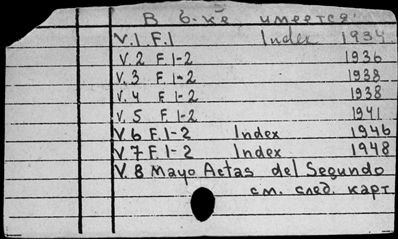 В б-ке имеется:
V.1 F.1 Index 1934
V.2 F.1-2 1936
V.3 F.1-2 1938
V.4 F.1-2 1938
V.5 F.1-2 1941
V.6 F.1-2 Index 1946
V.7 F.1-2 Index 1948
V.8 Mayo Actas del Segundo
см. след. карт.